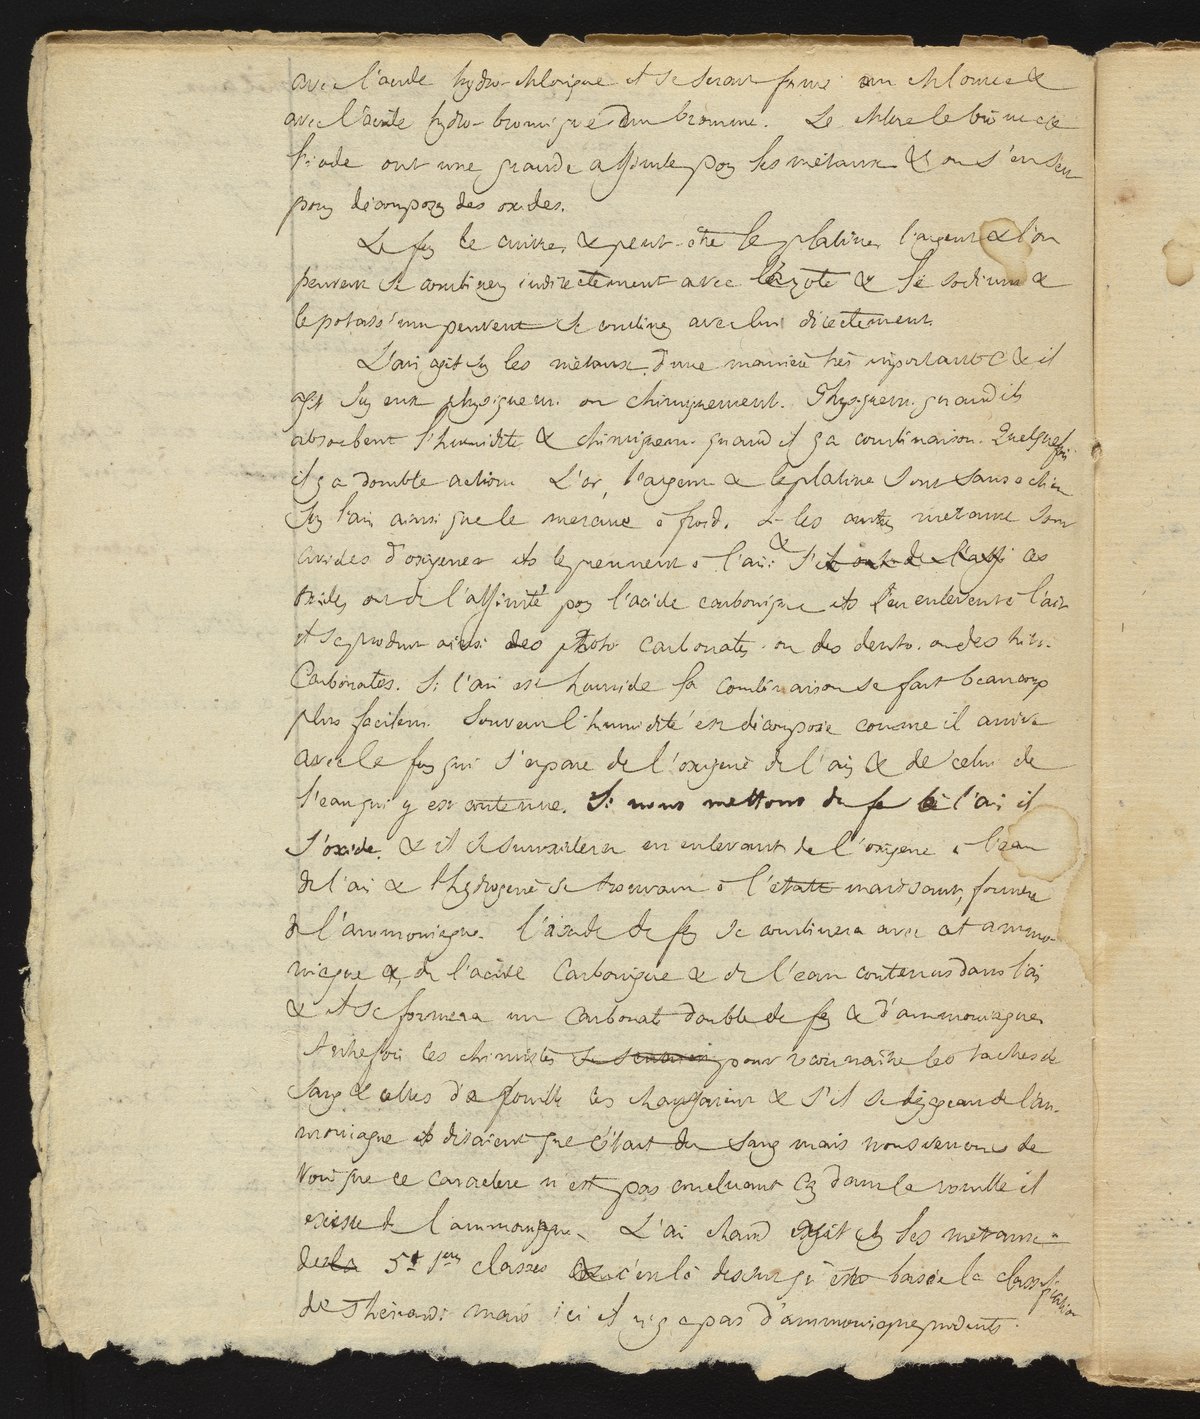 avec l'acide hydro-chlorique et se serait formé un chlorure &
avec l'acide hydro-bromique d'un bromure. Le chlore le brome et
l'iode ont une grande affinité pour les métaux & on s'en sert
pour décomposer des oxides.
Le fer le cuivre, & peut-être le platine, l'argent & l'or
peuvent se combiner indirectement avec l'azote & le sodium &
le potassium peuvent se combiner avec lui directement.
L'air agit sur les métaux d'une manière très importante & il
agit sur eux physiquem. ou chimiquement. Physiquem. quand ils
absorbent l'humidité & chimiquem. quand il y a combinaison. Quelquefois
il y a double action. L'or, l'argent & le platine sont sans action
sur l'air ainsi que le mercure à froid. les autres métaux sont
avides d'oxigène & ils le prennent à l'air & si ces
oxides ont de l'affinité pour l'acide carbonique ils l'en enlèvent à l'air
et se produit ainsi des proto carbonates. ou des deuto. ou des trito.
Carbonates. Si l'air est humide la combinaison se fait beaucoup
plus facilem. Souvent l'humidité est décomposée comme il arrive
avec le fer qui s'empare de l'oxigène de l'air & de celui de
l'eau qui y est contenue. Si nous mettons du fer à l'air il
s'oxide. & il se suroxidera en enlevant de l'oxigène à l'eau
de l'air & l'hydrogène se trouvant à l'état naissant, formera
de l'ammoniaque. l'oxide de fer se combinera avec cet ammo-
niaque & de l'acide Carbonique & de l'eau contenus dans l'air
& il se formera un Carbonate double de fer & d'ammoniaque
Autrefois les chimistes pour reconnaître les taches de
sang & celles de rouille les chauffaient & s'il se dégageait de l'am-
moniaque ils disaient que c'était du sang mais nous venons de
voir que ce caractère n'est pas concluant car dans la rouille il
existe de l'ammoniaque. L'air chaud agit sur les métaux
des 5 1ères classes & c'est là dessus qu'est basée la classification
de Thénard: mais ici il n'y a pas d'ammoniaque produite.